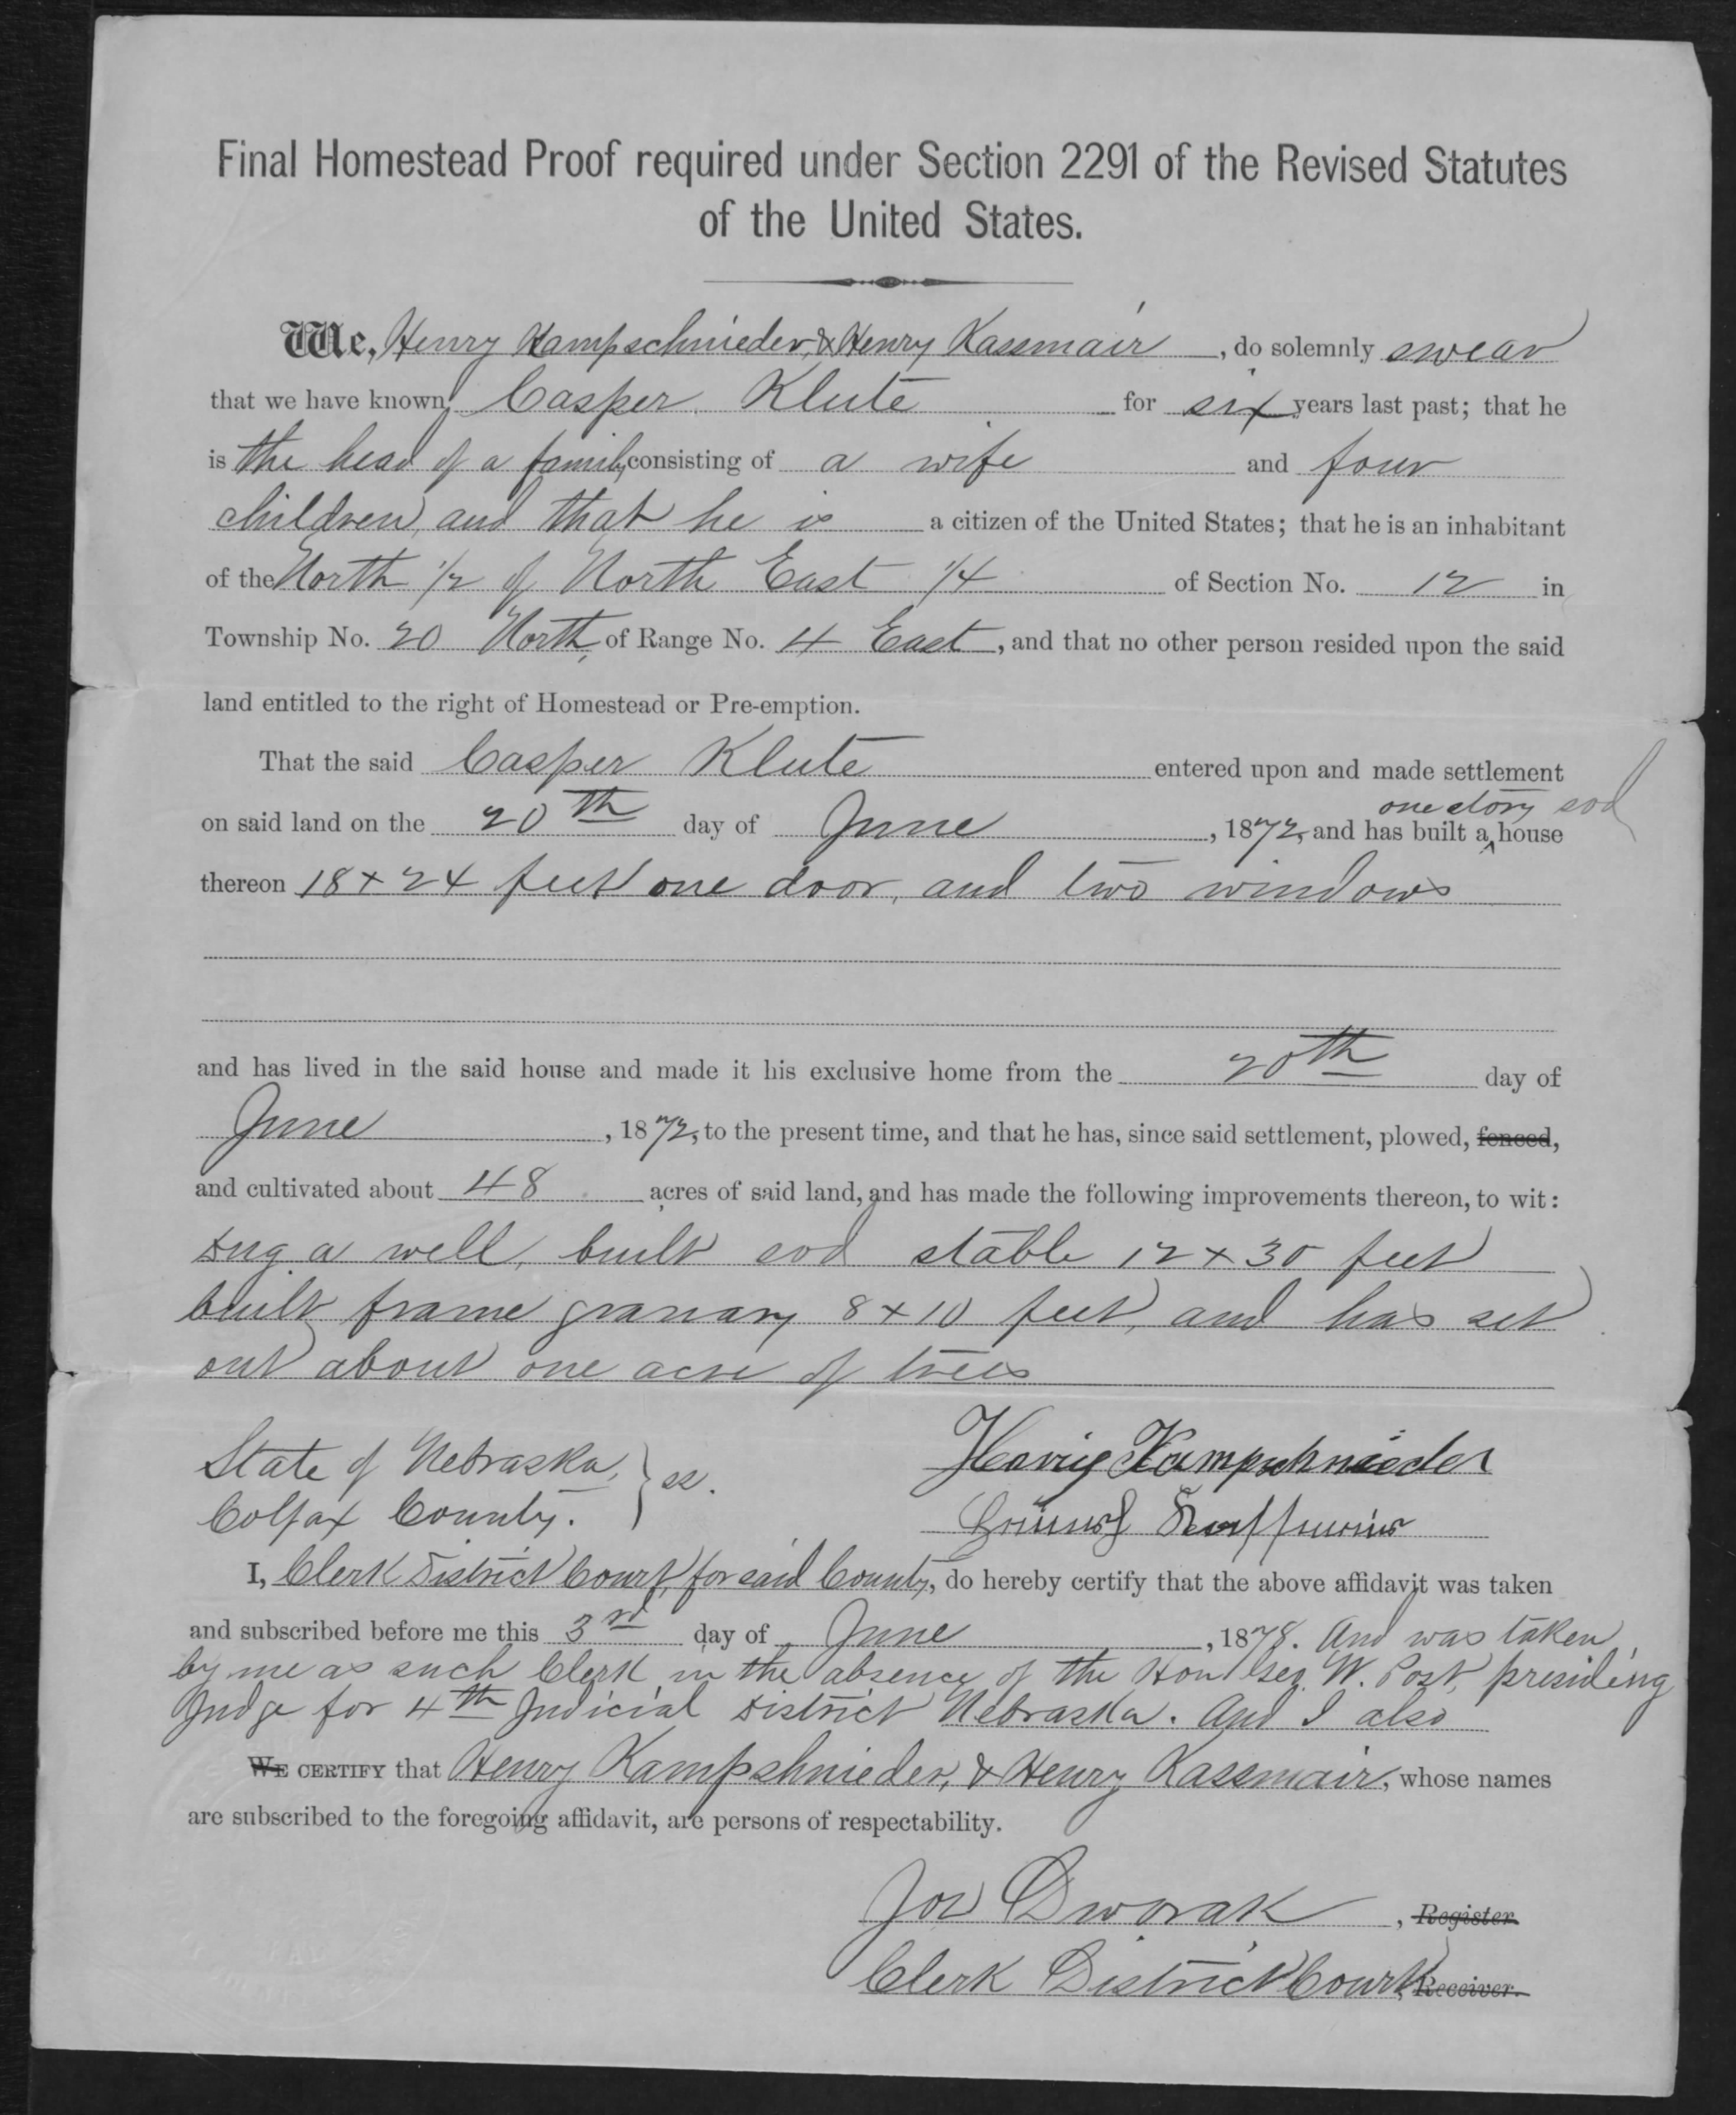 Final Homestead Proof required under Section 2291 of the Revised Statutes
of the United States.
We, Henry Kampschnieder, & Henry Kassmair, do solemnly swear
that we have known Casper Klute for six years last past; that he
is the head of a family consisting of a wife and four
children, and that he is a citizen of the United States; that he is an inhabitant
of the North 1/2 of North East 1/4 of Section No. 12 in
Township No. 20 North, of Range No. 4 East, and that no other person resided upon the said
land entitled to the right of Homestead or Pre-emption.
That the said Casper Klute entered upon and made settlement
one story sod
on said land on the 20th day of June, 1872, and has built a ^ house
thereon 18 x 24 feet one door, and two windows
and has lived in the said house and made it his exclusive home from the 20th day of
June, 1872, to the present time, and that he has, since said settlement, plowed, fenced,
and cultivated about 48 acres of said land, and has made the following improvements thereon, to wit:
dug a well, built sod stable 12 x 30 feet
built frame granary 8 x 10 feet, and has set
out about one acre of trees
State of Nebraska, } ss.
Colfax County.
Henry Kampschnieder
I, Clerk District Court, for said County, do hereby certify that the above affidavit was taken
and subscribed before me this 3rd day of June, 1878. And was taken
by me as such Clerk in the absence of the Hon Geo. W. Post, presiding
Judge for 4th Judicial District Nebraska. And I also
WE CERTIFY that Henry Kampshnieder, & Henry Kassmair, whose names
are subscribed to the foregoing affidavit, are persons of respectability.
Jos Dworak, Register
Clerk District Court, Receiver.